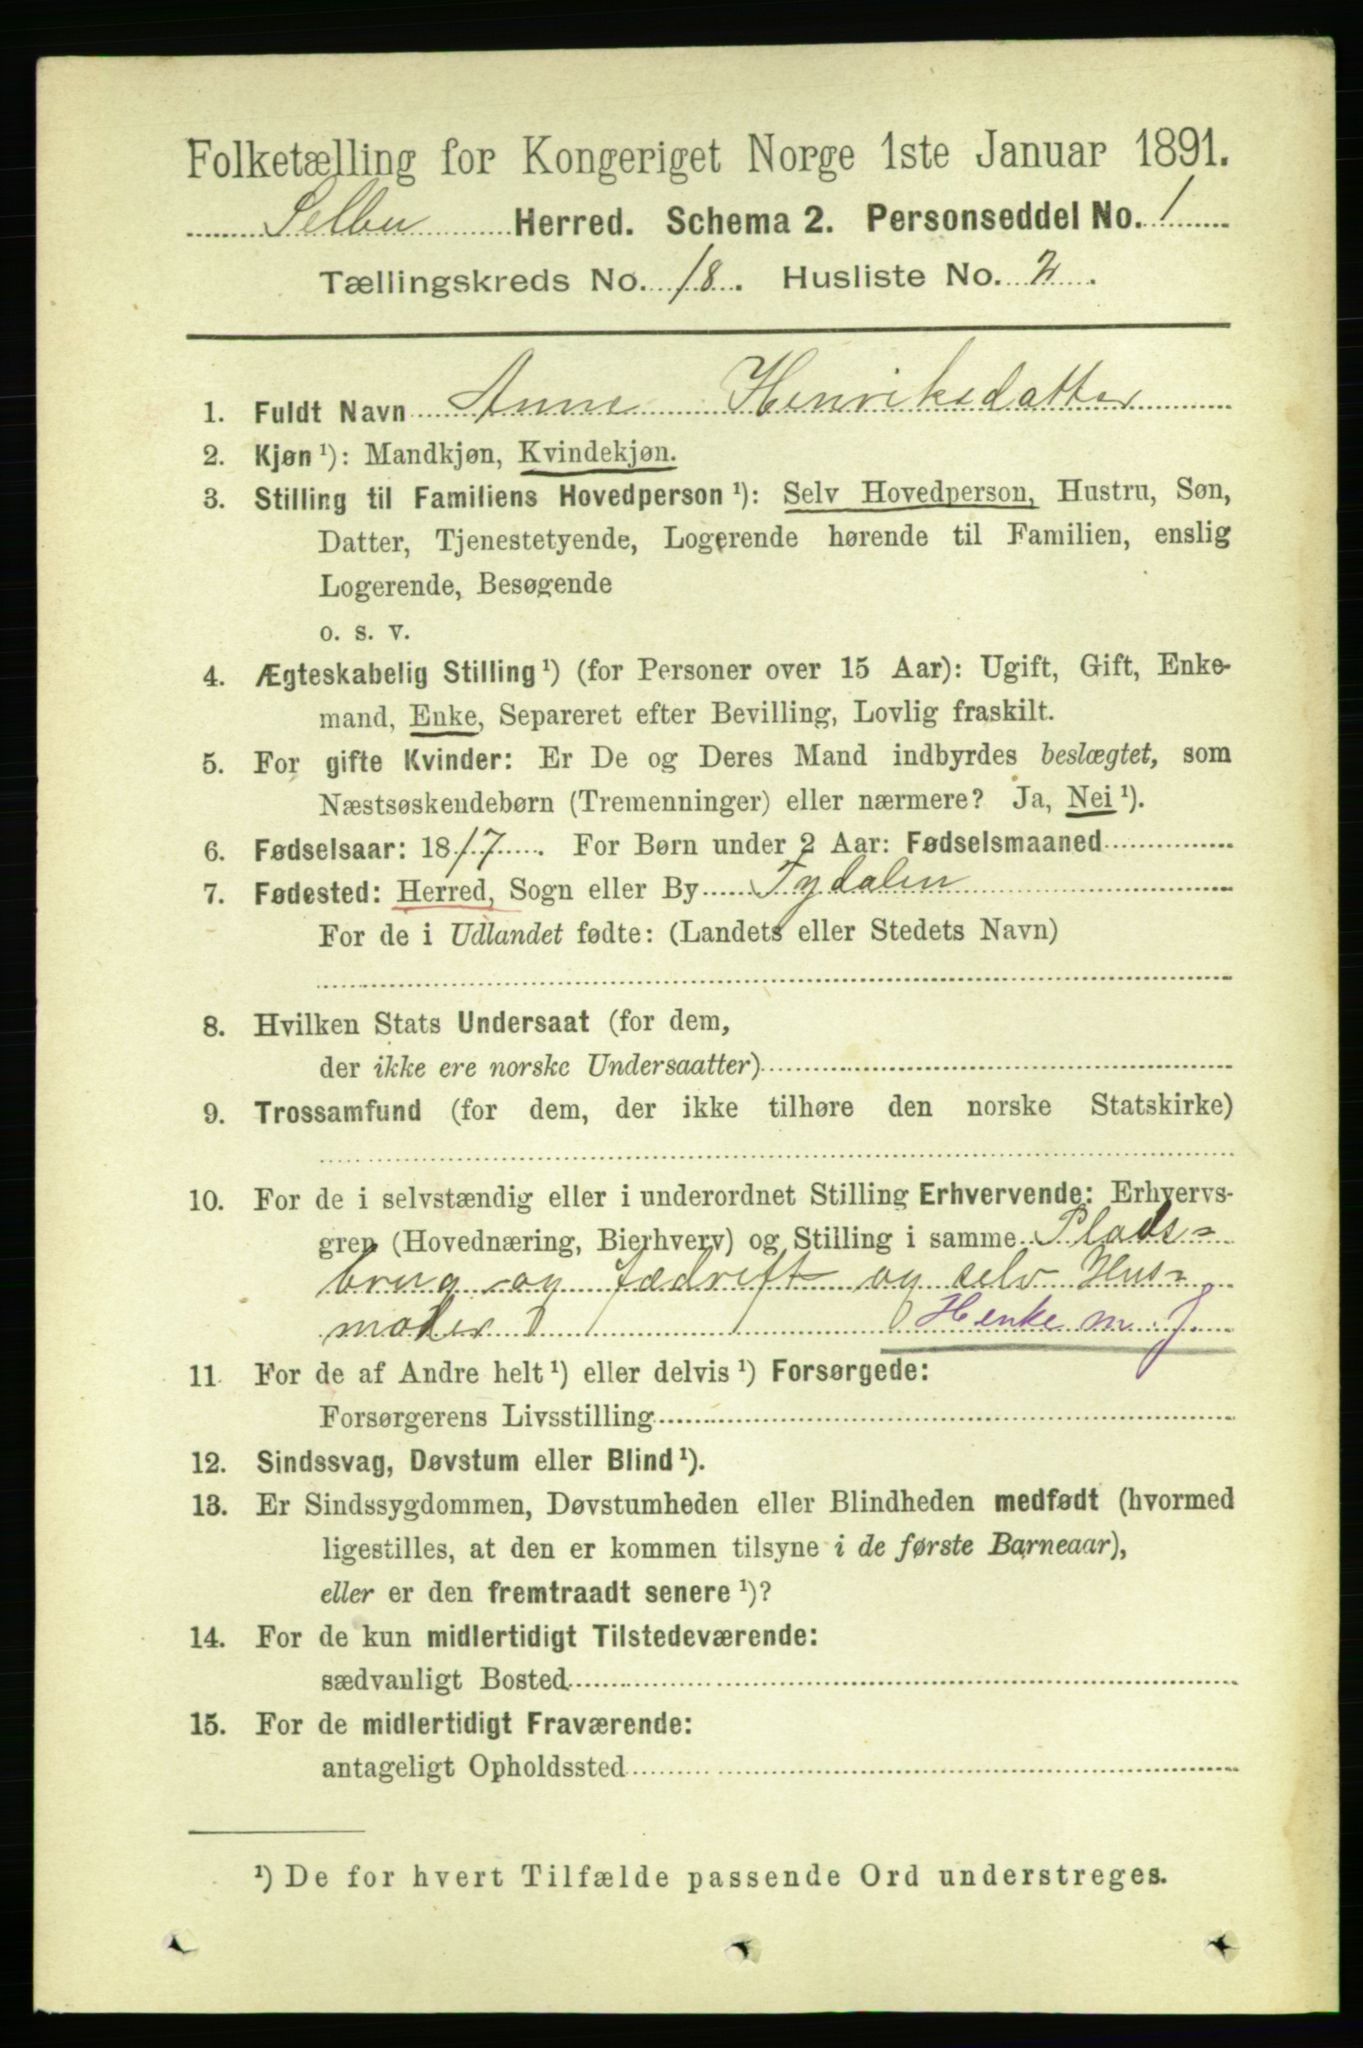 Folketælling for Kongeriget Norge 1ste Januar 1891.
Selbu Herred. Schema 2. Personseddel No. 1
Tællingskreds No. 18. Husliste No. 2.
1. Fuldt Navn Anne Henriksdatter
2. Kjøn ¹): Mandkjøn, Kvindekjøn.
3. Stilling til Familiens Hovedperson ¹): Selv Hovedperson, Hustru, Søn,
Datter, Tjenestetyende, Logerende hørende til Familien, enslig
Logerende, Besøgende
o. s. v.
4. Ægteskabelig Stilling ¹) (for Personer over 15 Aar): Ugift, Gift, Enke-
mand, Enke, Separeret efter Bevilling, Lovlig fraskilt.
5. For gifte Kvinder: Er De og Deres Mand indbyrdes beslægtet, som
Næstsøskendebørn (Tremenninger) eller nærmere? Ja, Nei ¹).
6. Fødselsaar: 1817. For Børn under 2 Aar: Fødselsmaaned
7. Fødested: Herred, Sogn eller By Tydalen
For de i Udlandet fødte: (Landets eller Stedets Navn)
8. Hvilken Stats Undersaat (for dem,
der ikke ere norske Undersaatter)
9. Trossamfund (for dem, der ikke tilhøre den norske Statskirke)
10. For de i selvstændig eller i underordnet Stilling Erhvervende: Erhvervs-
gren (Hovednæring, Bierhverv) og Stilling i samme Plads-
brug og fædrift og selv Hus-
moder Henke m. J.
11. For de af Andre helt ¹) eller delvis ¹) Forsørgede:
Forsørgerens Livsstilling
12. Sindssvag, Døvstum eller Blind ¹).
13. Er Sindssygdommen, Døvstumheden eller Blindheden medfødt (hvormed
ligestilles, at den er kommen tilsyne i de første Barneaar),
eller er den fremtraadt senere ¹)?
14. For de kun midlertidigt Tilstedeværende:
sædvanligt Bosted
15. For de midlertidigt Fraværende:
antageligt Opholdssted
¹) De for hvert Tilfælde passende Ord understreges.